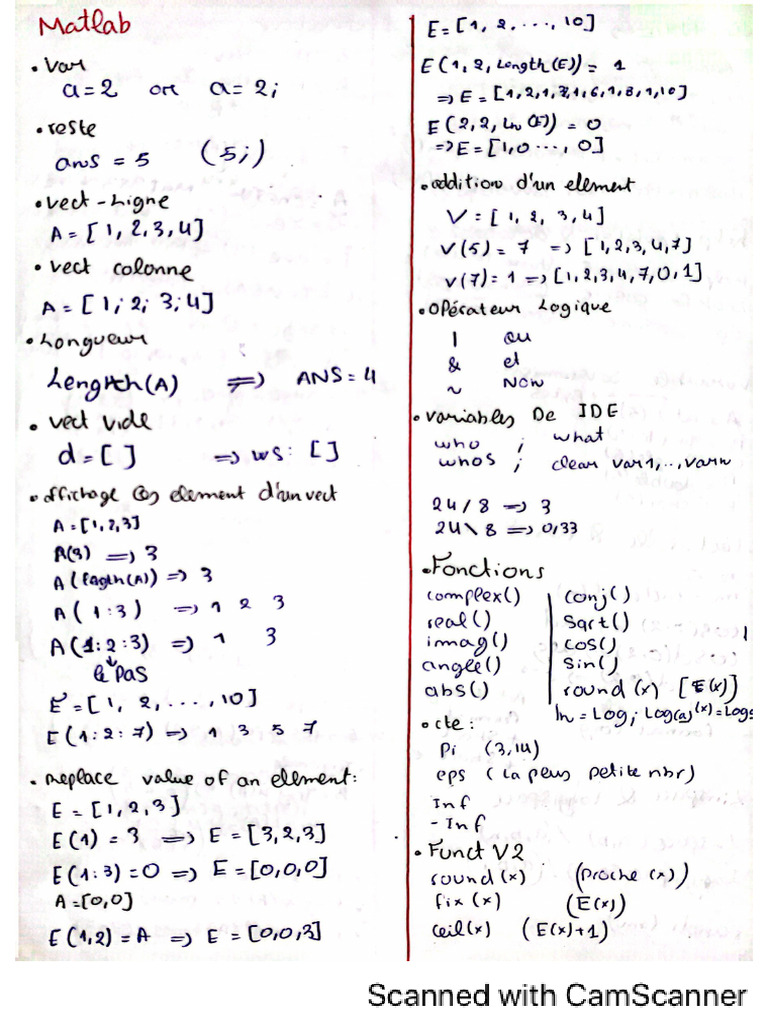 Matlab
• Var
a=2 or a=2;
• reste
ans = 5 (5;)
• vect-Ligne
A=[1,2,3,4]
• vect colonne
A=[1;2;3;4]
• Longueur
Length(A) => ANS=4
• vect vide
d=[] => ws: []
• affichage des element d'un vect
A=[1,2,3]
A(3) => 3
A(length(A)) => 3
A(1:3) => 1 2 3
A(1:2:3) => 1 3
le pas
E=[1, 2,...,10]
E(1:2:7) => 1 3 5 7
• replace value of an element:
E=[1,2,3]
E(1)=3 => E=[3,2,3]
E(1:3)=0 => E=[0,0,0]
A=[0,0]
E(1,2)=A => E=[0,0,3]
E=[1, 2,...,10]
E(1,2,Length(E))= 1
=> E=[1,2,1,3,1,6,1,8,1,10]
E(2,2,Ln(E))=0
=> E=[1,0...,0]
• addition d'un element
V=[1, 2, 3,4]
V(5)=7 => [1,2,3,4,7]
V(7)=1 => [1,2,3,4,7,0,1]
• Opérateur Logique
| ou
& et
~ Non
• variables De IDE
who ; what
whos ; clear var1,..,varn
24/8 => 3
24\8 => 0,33
• Fonctions
complex() | conj()
real() | Sqrt()
imag() | cos()
angle() | Sin()
abs() | round(x) [E(x)]
ln = Log; Log(a)(x)=Log
• cte:
Pi (3,14)
eps (la plus petite nbr)
Inf
-Inf
• Funct V2
round(x) (Proche(x))
fix(x) (E(x))
ceil(x) (E(x)+1)
Scanned with CamScanner